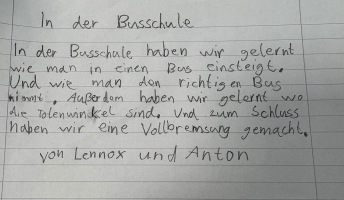 In der Busschule
In der Busschule haben wir gelernt
wie man in einen Bus einsteigt.
Und wie man den richtigen Bus
nimmt. Außerdem haben wir gelernt wo
die Totenwinkel sind. Und zum Schluss
haben wir eine Vollbremsung gemacht.
von Lennox und Anton